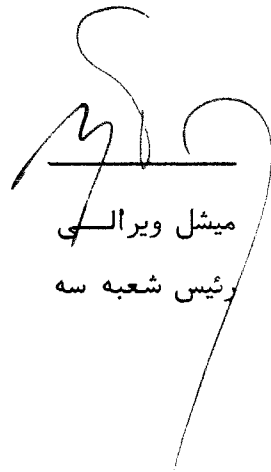 میشل ویرالی
رئیس شعبه سه